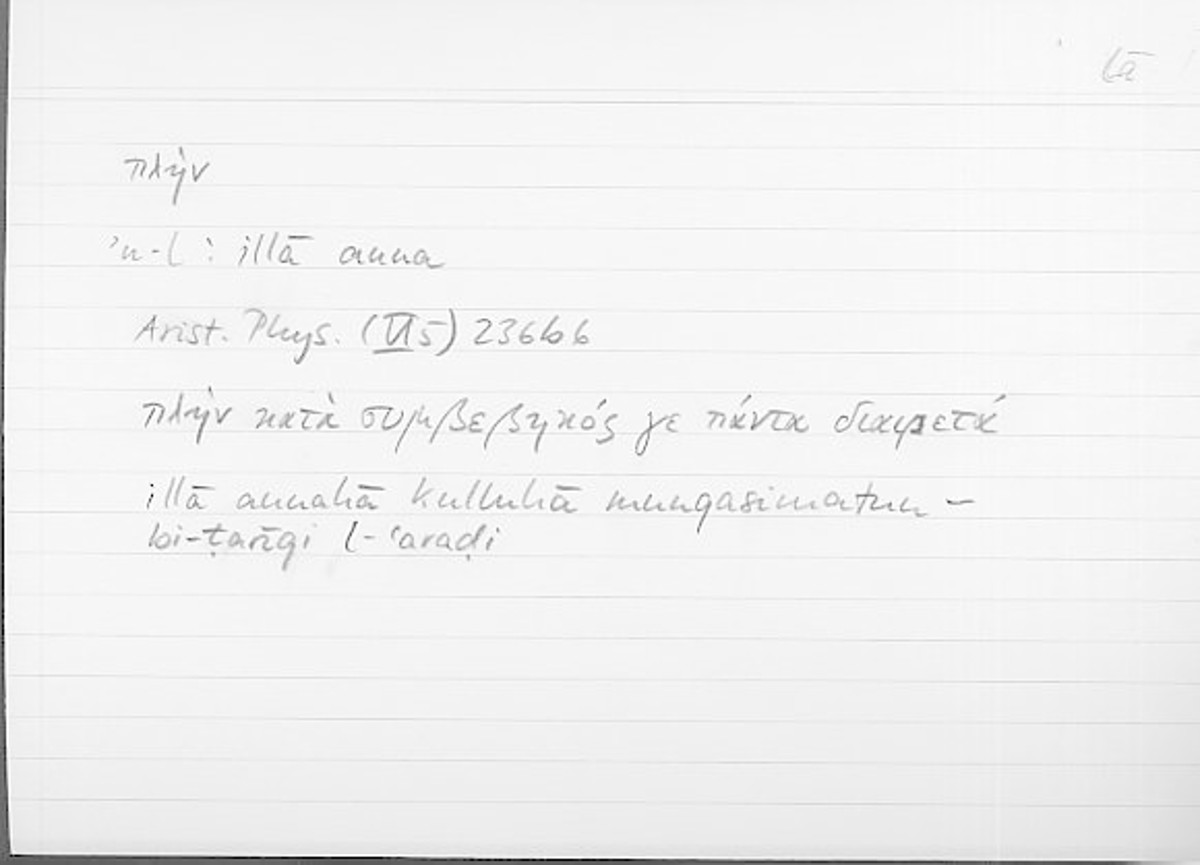 lā
πλήν
ʾn-l : illā anna
Arist. Phys. (VI 5) 236b6
πλὴν κατὰ συμβεβηκός γε πάντα διαιρετά
illā annahā kulluhā munqasimatun
bi-ṭarīqi l-ʿaraḍi